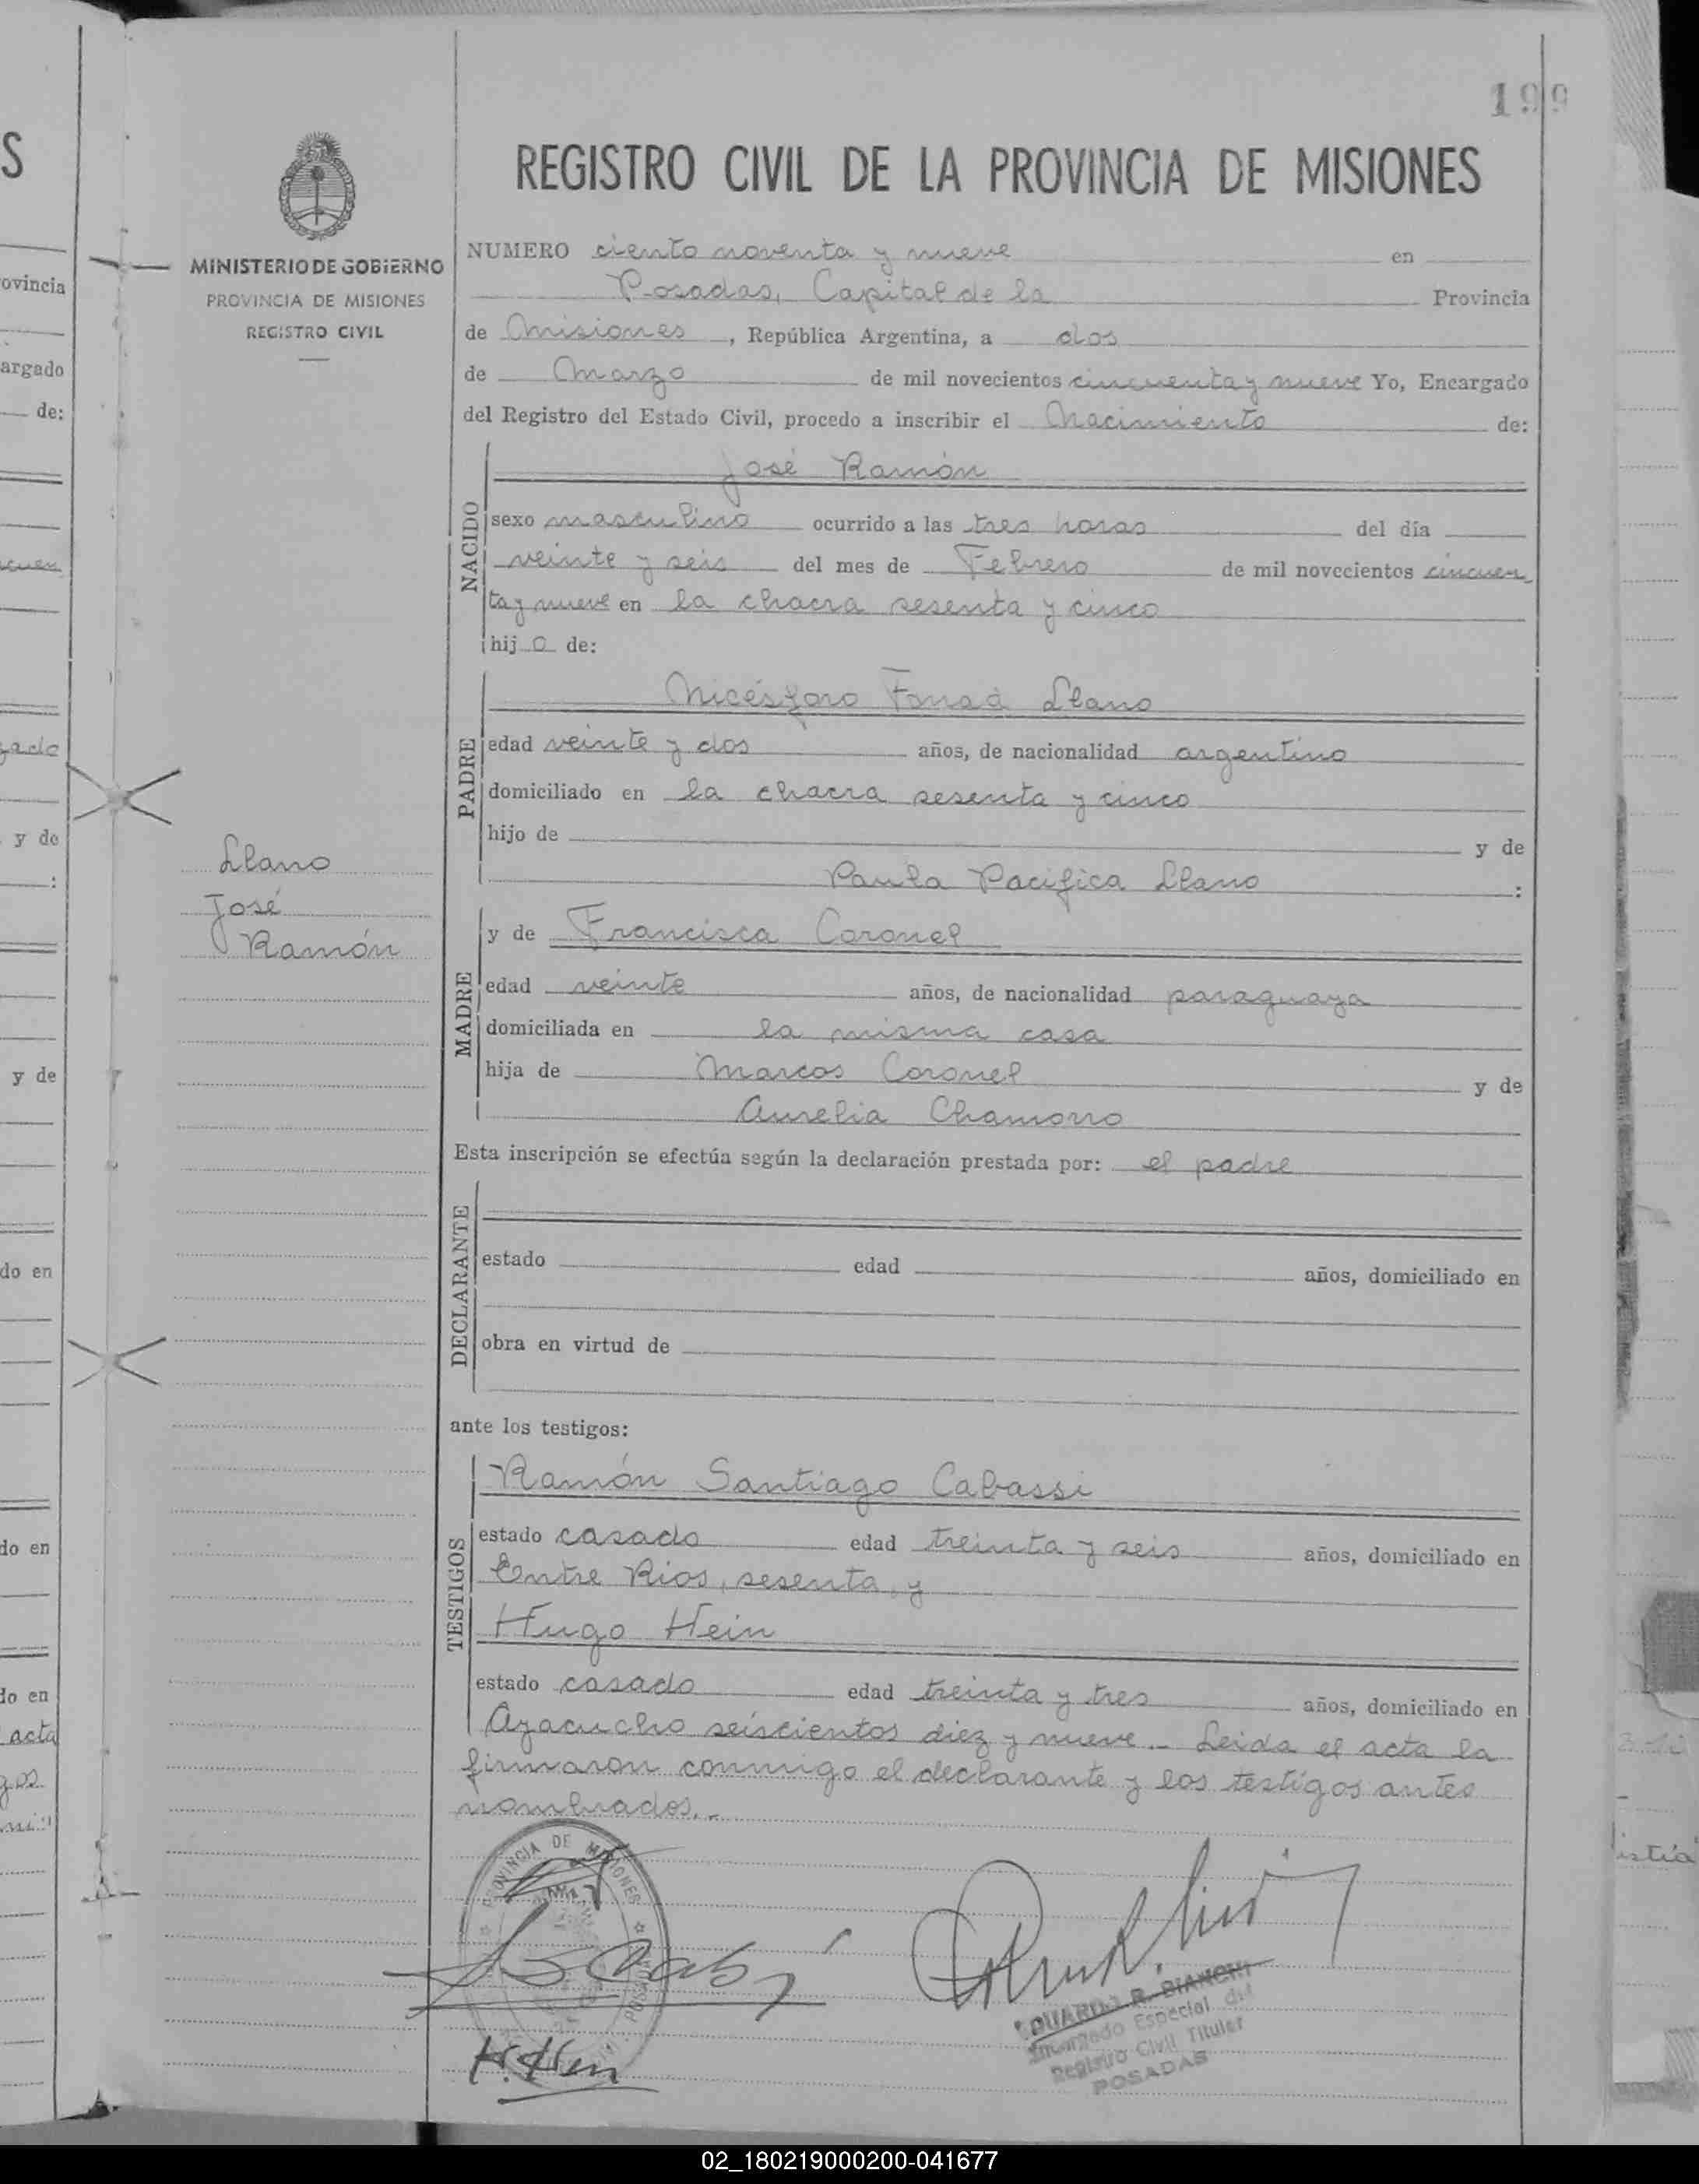 199
REGISTRO CIVIL DE LA PROVINCIA DE MISIONES
MINISTERIO DE GOBIERNO
PROVINCIA DE MISIONES
REGISTRO CIVIL
NUMERO ciento noventa y nueve en
Posadas, Capital de la Provincia
de Misiones, República Argentina, a dos
de Marzo de mil novecientos cincuenta y nueve Yo, Encargado
del Registro del Estado Civil, procedo a inscribir el Nacimiento de:
NACIDO
José Ramón
sexo masculino ocurrido a las tres horas del día
veinte y seis del mes de Febrero de mil novecientos cincuen
ta y nueve en la chacra sesenta y cinco
hijo de:
PADRE
Nicésforo Llano
edad veinte y dos años, de nacionalidad argentino
domiciliado en la chacra sesenta y cinco
hijo de y de
Paula Pacifica Llano :
Llano
José
Ramón
MADRE
y de Francisca Coronel
edad veinte años, de nacionalidad paraguaya
domiciliada en la misma casa
hija de Marcos Coronel y de
Aurelia Chamorro
Esta inscripción se efectúa según la declaración prestada por: el padre
DECLARANTE
estado edad años, domiciliado en
obra en virtud de
ante los testigos:
TESTIGOS
Ramón Santiago Cabassi
estado casado edad treinta y seis años, domiciliado en
Entre Rios, sesenta, y
Hugo Hein
estado casado edad treinta y tres años, domiciliado en
Ayacucho seiscientos diez y nueve.- Leida el acta la
firmaron conmigo el declarante y los testigos antes
nombrados.-
PROVINCIA DE MISIONES
POSADAS
H. Hein
EDUARDO R. BIANCHI
Encargado Especial del
Registro Civil Titular
POSADAS
S
ovincia
argado
de:
cuen
y de
:
y de
do en
do en
do en
acta
02_180219000200-041677